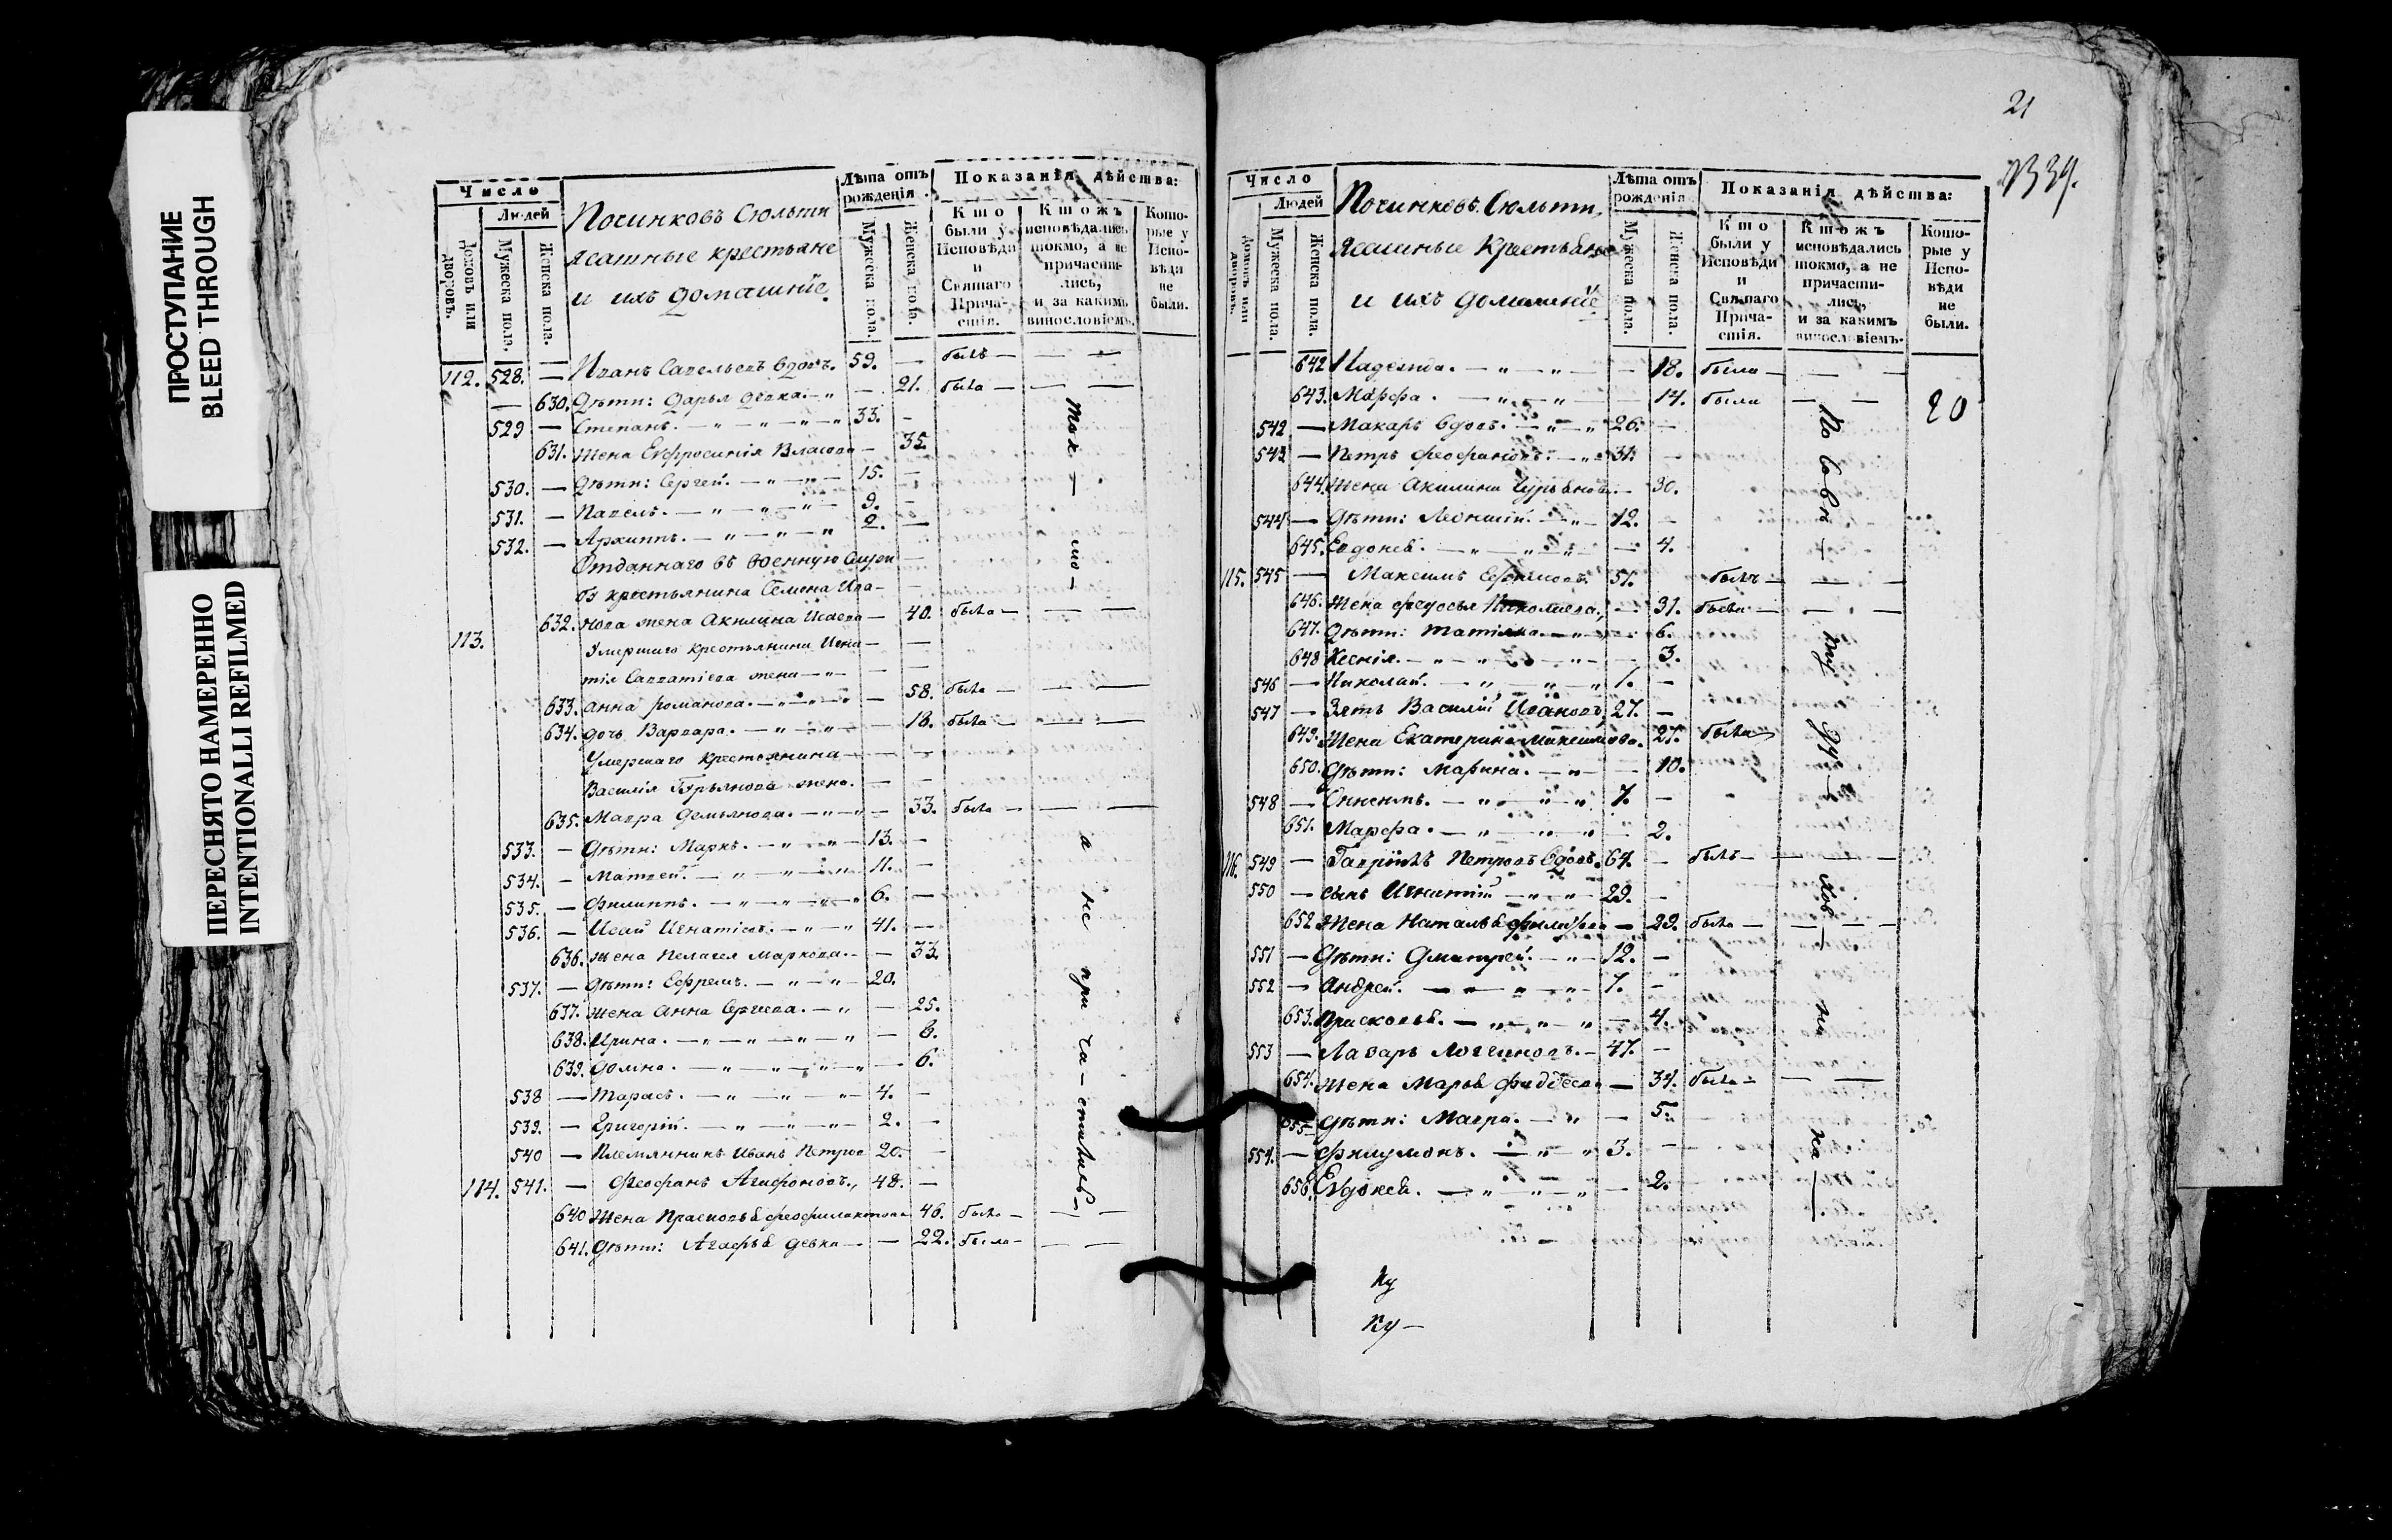 ПРОСТУПАНИЕ
BLEED THROUGH
ПЕРЕСНЯТО НАМЕРЕННО
INTENTIONALLI REFILMED
Число
Людей
Домовъ или дворовъ.
Мужеска пола.
Женска пола.
Починковъ Сюльти
ясашные крестьяне
и ихъ домашніе.
Лѣта отъ рожденія.
Мужеска пола.
Женска пола.
Показанія дѣйства:
Кто были у Исповѣди и Святаго Причастія.
Ктожъ исповѣдались токмо, а не причастились, и за какимъ винословіемъ.
Которые у Исповѣди не были.
112. 528. — Иванъ Савельевъ вдовъ. 59. — былъ — — —
— 630. Дѣти: Дарья девка. — 21. была — — —
529 — Степанъ. 33. —
631. Жена Евфросинія Власова — 35.
530. — Дѣти: Сергей. 15. —
531. — Павелъ. 9. —
532. — Архиппъ. 2. —
Отданнаго въ военную служ
бу крестьянина Семена Ива—
632. нова жена Акилина Исаева — 40. была — — —
113. Умершаго крестьянина Игна —
тія Савватіева жена —
633. Анна Романова. — 58. была — — —
634. дочь Варвара. — 18. была — — —
Умершаго крестьянина —
Василія Гурьянова жена. —
635. Мавра Демьянова. — 33. была — — —
533. — Дѣти: Маркъ. 13. —
534. — Матвей. 11. —
535. — Филиппъ. 6. —
536. — Исаи Игнатіевъ. 41. —
636. жена Пелагея Маркова. — 33.
537. — дѣти: Ефремъ. 20.
637. жена Анна Сергеева. — 25.
638. Ирина. —
639. Домна. — 6.
538 — Тарасъ. 4. —
539. — Григорій. 2. —
540 — Племянникъ Иванъ Петров 20. —
114. 541. — Феофанъ Агафоновъ. 48. —
640 Жена Прасковья Феофилактова 46. была — — —
641. Дѣти: Агафья девка — 22. была — — —
ток — мо —
а не при ча — стились
21
20
Число
Людей
Домовъ или дворовъ.
Мужеска пола.
Женска пола.
Починковъ Сюльти
Ясашные Крестьяне
и ихъ домашніе
Лѣта отъ рожденія.
Мужеска пола.
Женска пола.
Показанія дѣйства:
Кто были у Исповѣди и Святаго Причастія.
Ктожъ исповѣдались токмо, а не причастились, и за какимъ винословіемъ.
Которые у Исповѣди не были.
642 Надежда. — 18. была — — —
643. Марфа. — 14. была — —
542 — Макаръ вдовъ. 26. —
543 — Петръ Феофановъ. 31. —
644. Жена Акилина Гурьянова — 30.
544 — Дѣти: Леонтій. 12. —
645. Евдокея. — 4.
115. 545 — Максимъ Ефимовъ. 51. былъ — — —
646. Жена Федосья Николаева, — 31. была — — —
647. Дѣти: Татіяна. — 6.
648 Ксенія. — 3.
546 — Николай. 1. —
547 — Зять Василій Ивановъ, 27. —
649. Жена Екатерина Максимова. 27. была
650. Дѣти: Марина. — 10.
548 — Онисимъ. 7. —
651. Марфа. — 2.
116. 549 — Гавріилъ Петровъ вдовъ. 64. — былъ — — —
550 — сынъ Игнатій 29. —
652 Жена Наталья Филипова — 29. была — — —
551 — Дѣти: Дмитрей. 12. —
552 — Андрей. 7. —
653. Прасковья. — 4.
553 — Лазарь Логгиновъ. 47. —
654. Жена Марья Фаддеева — 34. была — — —
655 дѣти: Мавра. — 5.
554. — Филимонъ. 3. —
656. Евдокея. — 2.
По Совѣ —
ду — хов — на —
Ку
Ку —